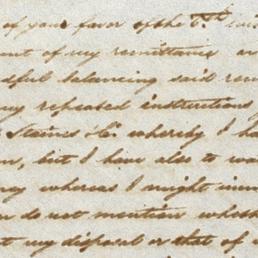 of your favor of the 6th
ount of my remittance
dful balancing said rem
my repeated instructions
Staines &c. whereby I ha
n, but I have also to wa
ney whereas I might imm
u do not mention wheth
at my disposal or that of